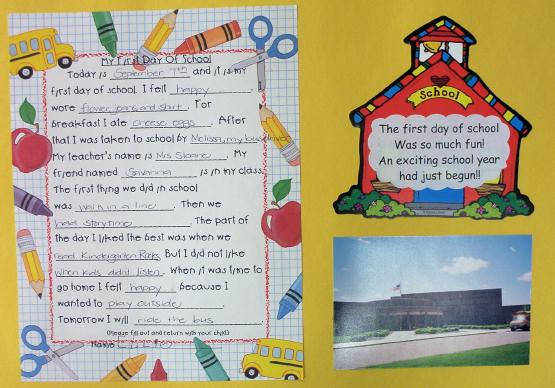 My First Day Of School
Today is September 7th and it is my
first day of school. I felt happy. I
wore flower jeans and shirt. For
breakfast I ate cheese eggs. After
that I was taken to school by Melissa, my bus driver
My teacher's name is Mrs Sloane. My
friend named Savanna is in my class.
The first thing we did in school
was walk in a line. Then we
had storytime. The part of
the day I liked the best was when we
read Kindergarten Rocks. But I did not like
when kids didn't listen. When it was time to
go home I felt happy because I
wanted to play outside.
Tomorrow I will ride the bus.
(Please fill out and return with your child)
Name
School
The first day of school
Was so much fun!
An exciting school year
had just begun!!